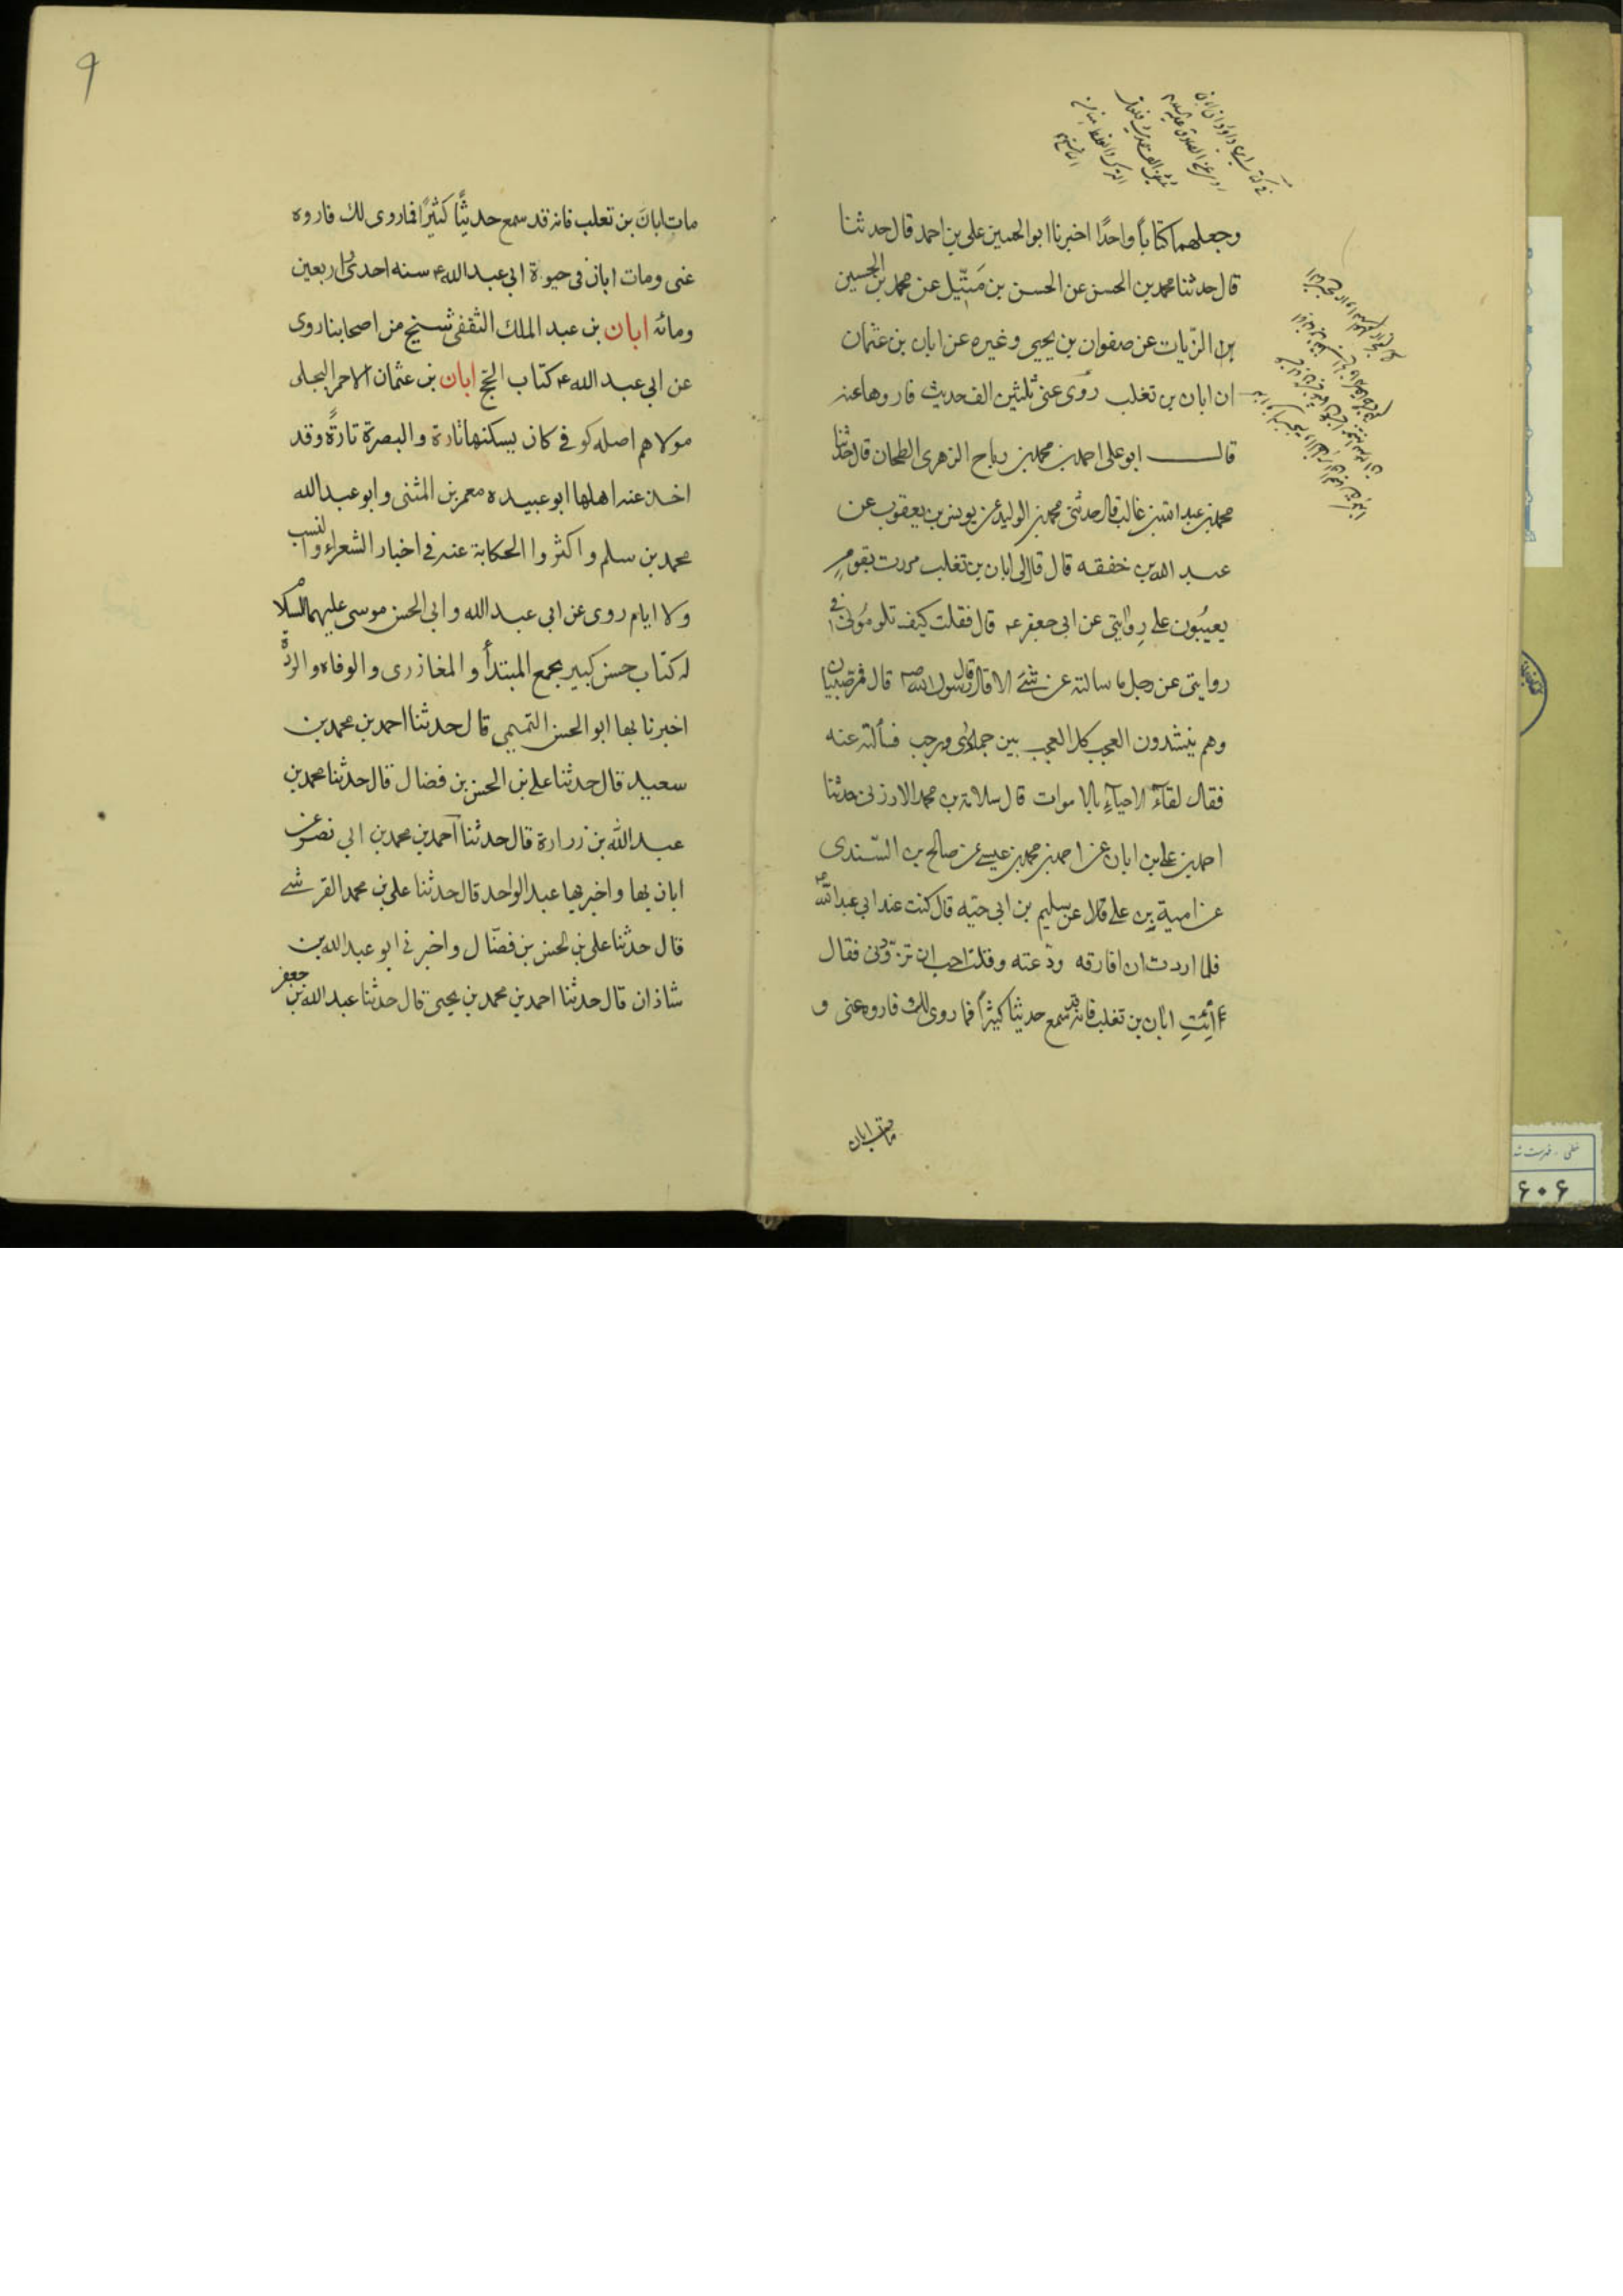 وجعلهما كتاباً واحدًا اخبرنا ابو الحسين على بن احمد قال حدثنا
قال حدثنا محمد بن الحسن عن الحسن بن مَتّيل عن محمد بن الحسين
بن الزّيات عن صفوان بن يحيى وغيره عن ابان بن عثمان
ان ابان بن تغلب روى عنى ثلثين الف حديث فاروها عنه
قال ابو على احمد بن محمد بن رباح الزهرى الطحان قال حدثنا
محمد بن عبد الله بن غالب قال حدثنى محمد بن الوليد عن يونس بن يعقوب عن
عبد الله بن خفقه قال قال لى ابان بن تغلب مررت بقومٍ
يعيبُون على رِوايتى عن ابى جعفر ع قال فقلت كيف تلومُونى فى
روايتى عن رجل ما سالته عن شئ الا قال قال رسول الله ص قال فمر صبيان
وهم ينشدون العجب كل العجب بين جمادى ورجب فسألته عنه
فقال لقآء الاحيآءِ بالاموات قال سلامة بن محمد الارزنى حدثنا
احمد بن على بن ابان عن احمد بن محمد بن عيسى عن صالح بن السّندى
عن امية بن على قال عن سليم بن ابى حيّه قال كنت عند ابى عبد الله ع
فلما اردت ان افارقه ودّعته وقلت احب ان تزوّدنى فقال
ائتِ ابان بن تغلب فانه قد سمع حديثا كثيرًا فما روى لك فاروه عنى و
مات ابان
٩
مات ابان بن تعلب فانه قد سمع حديثًا كثيرًا فما روى لك فاروه
عنى ومات ابان فى حيوة ابى عبد الله ع سنه احدى و اربعين
ومائه ابان بن عبد الملك الثقفى شيخ من اصحابنا روى
عن ابى عبد الله ع كتاب الحج ابان بن عثمان الاحمر البجلى
مولاهم اصله كوفى كان يسكنها تارة والبصرة تارةً وقد
اخذ عنه اهلها ابو عبيده معمر بن المثنى وابو عبد الله
محمد بن سلم واكثروا الحكاية عنه فى اخبار الشعراء والنسب
ولا ايام روى عن ابى عبد الله وابى الحسن موسى عليهما السلام
له كتاب حسن كبير يجمع المبتدأ والمغازرى والوفاه والردّة
اخبرنا بها ابو الحسن التميمى قال حدثنا احمد بن محمد بن
سعيد قال حدثنا على بن الحسن بن فضال قال حدثنا محمد بن
عبد الله بن زرارة قال حدثنا احمد بن محمد بن ابى نصر عن
ابان بها واخبر بها عبد الواحد قال حدثنا على بن محمد القرشى
قال حدثنا على بن الحسن بن فضّال واخبرنى ابو عبد الله بن
شاذان قال حدثنا احمد بن محمد بن يحيى قال حدثنا عبد الله بن جعفر
خطى - فهرست شد
۶۰۶